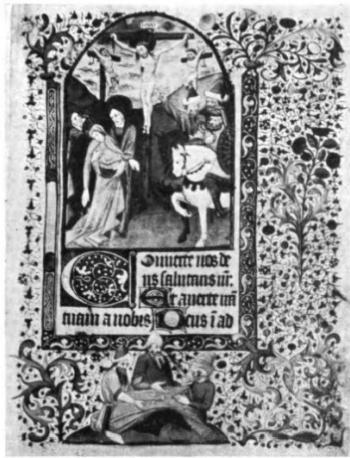 Conuerte nos de
us salutaris nr̄.
Et auerte irā
tuam a nobis Deus ī ad